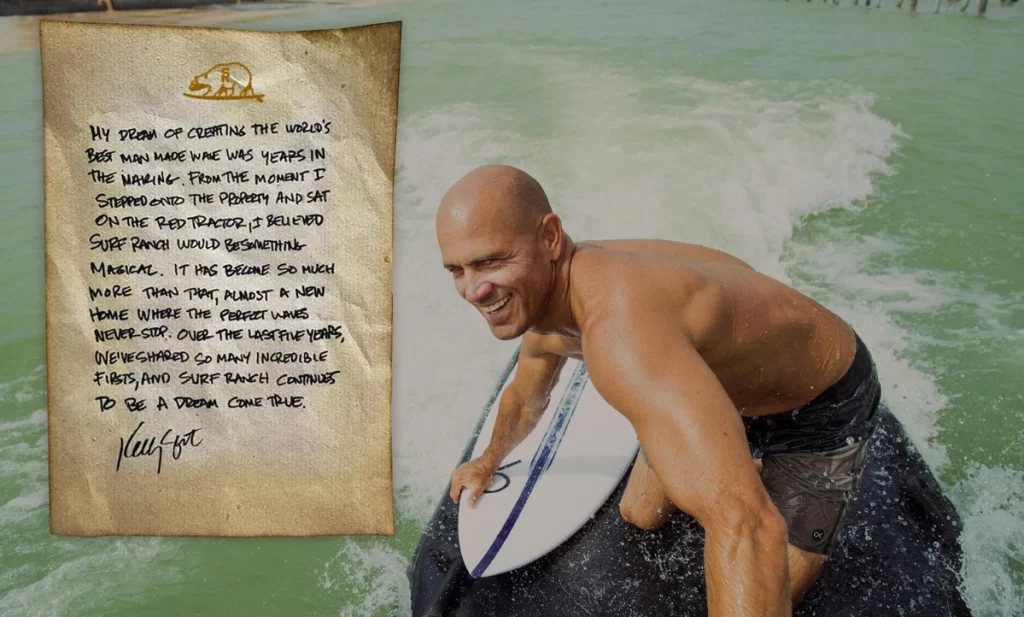 MY DREAM OF CREATING THE WORLD'S
BEST MAN MADE WAVE WAS YEARS IN
THE MAKING. FROM THE MOMENT I
STEPPED ONTO THE PROPERTY AND SAT
ON THE RED TRACTOR, I BELIEVED
SURF RANCH WOULD BE SOMETHING
MAGICAL. IT HAS BECOME SO MUCH
MORE THAN THAT, ALMOST A NEW
HOME WHERE THE PERFECT WAVES
NEVER STOP. OVER THE LAST FIVE YEARS,
WE'VE SHARED SO MANY INCREDIBLE
FIRSTS, AND SURF RANCH CONTINUES
TO BE A DREAM COME TRUE.